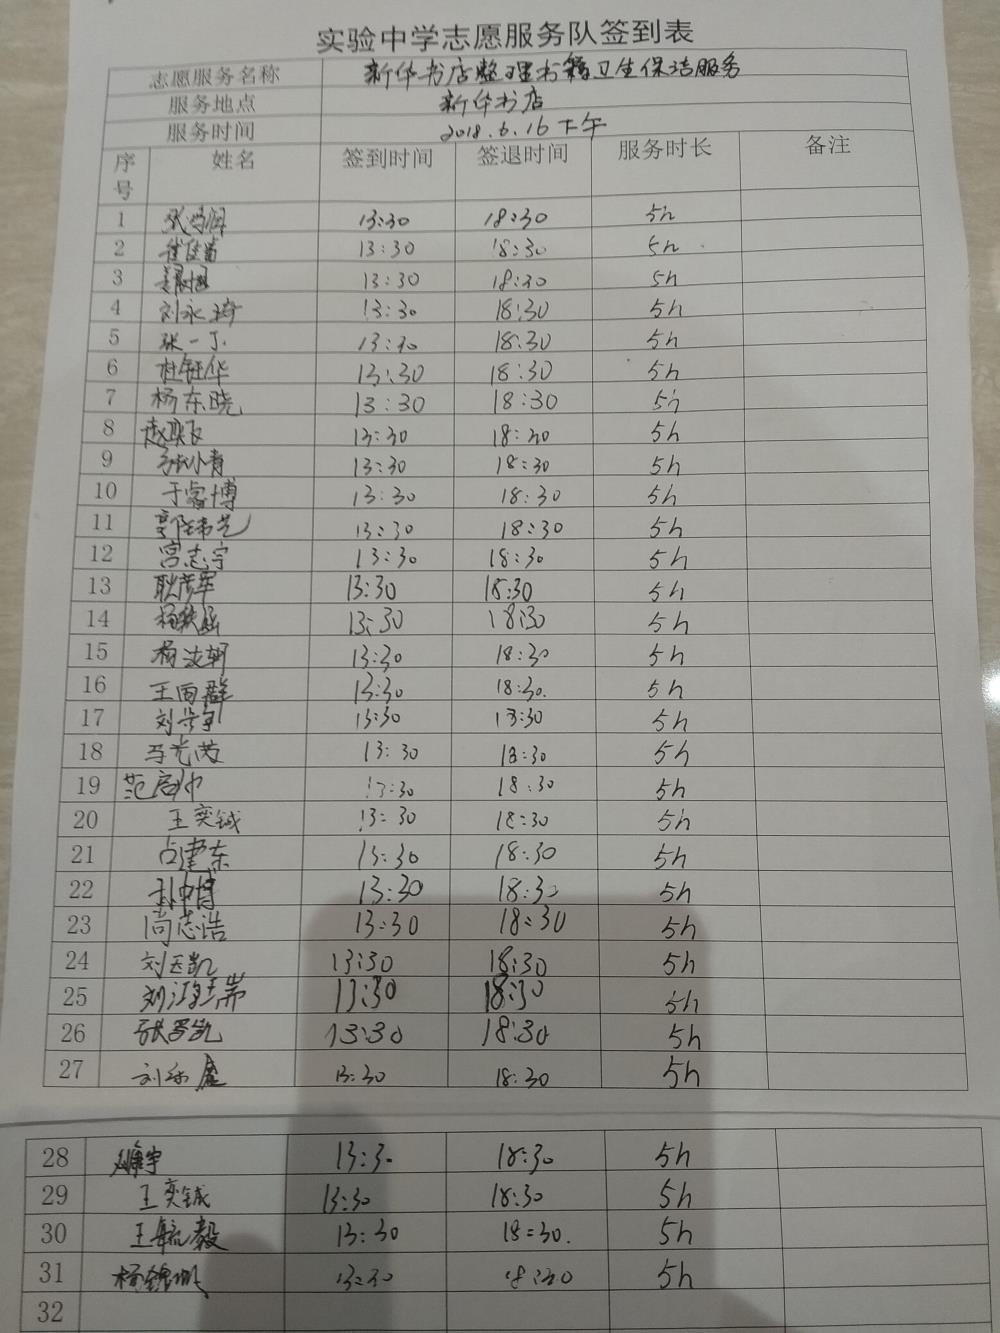 实验中学志愿服务队签到表
志愿服务名称 新华书店整理书籍卫生保洁服务
服务地点 新华书店
服务时间 2018.6.16下午
序号 姓名 签到时间 签退时间 服务时长 备注
1 13:30 18:30 5h
2 13:30 18:30 5h
3 13:30 18:30 5h
4 刘永琦 13:30 18:30 5h
5 张一丁 13:30 18:30 5h
6 杜钰华 13:30 18:30 5h
7 杨东晓 13:30 18:30 5h
8 13:30 18:30 5h
9 13:30 18:30 5h
10 于睿博 13:30 18:30 5h
11 13:30 18:30 5h
12 宫志宇 13:30 18:30 5h
13 耿彦军 13:30 18:30 5h
14 13:30 18:30 5h
15 13:30 18:30 5h
16 王雨群 13:30 18:30. 5h
17 13:30 13:30 5h
18 13:30 18:30 5h
19 范启帅 13:30 18:30 5h
20 王奕铖 13:30 18:30 5h
21 占建东 13:30 18:30 5h
22 孙中博 13:30 18:30 5h
23 尚志浩 13:30 18:30 5h
24 刘玉凯 13:30 18:30 5h
25 13:30 18:30 5h
26 13:30 18:30 5h
27 13:30 18:30 5h
28 13:30 18:30 5h
29 王奕铖 13:30 18:30 5h
30 王毓毅 13:30 18:30. 5h
31 13:30 18:30 5h
32